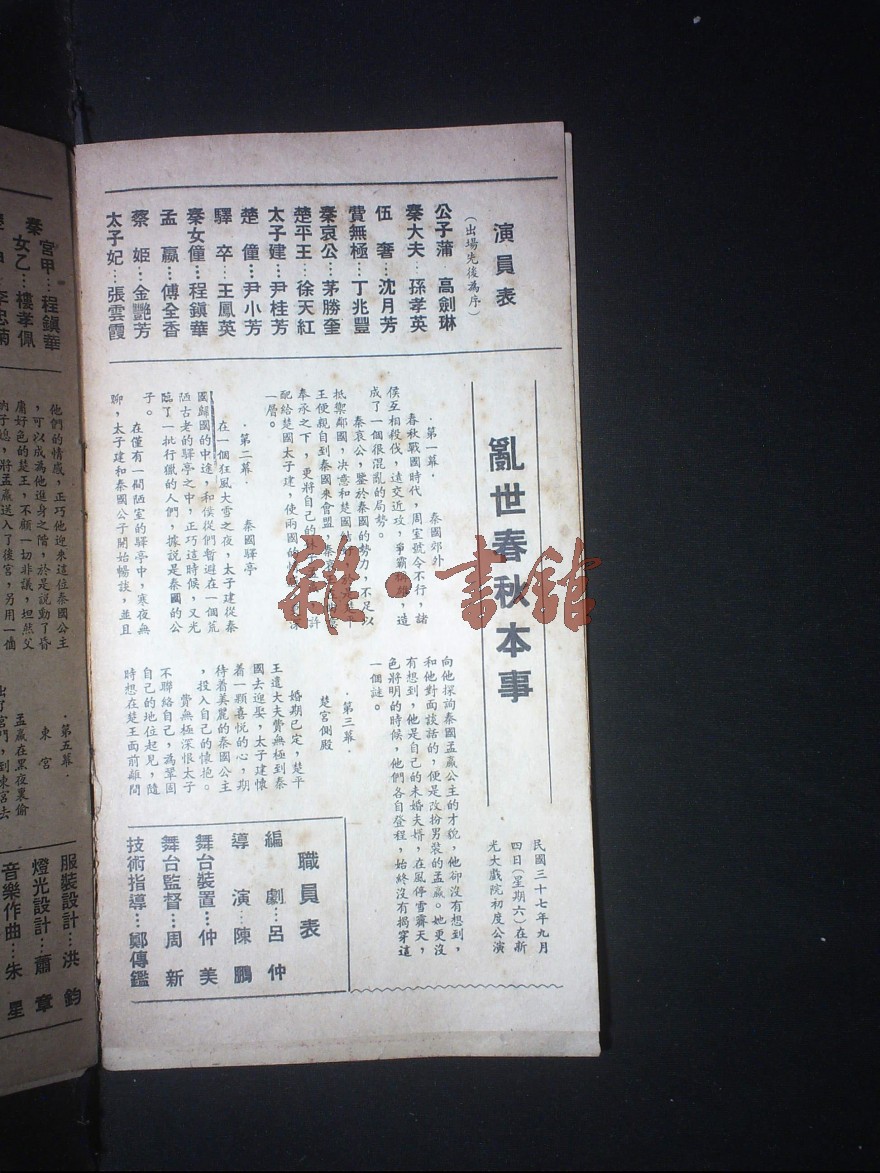 演員表
(出場先後為序)
公子蒲 高劍琳
秦大夫…孫孝英
伍奢…沈月芳
費無極…丁兆豐
秦哀公…茅勝奎
楚平王…徐天紅
太子建…尹桂芳
楚僮…尹小芳
驛卒…王鳳英
秦女僮…程鎭華
孟嬴…傅全香
蔡姬…金艷芳
太子妃…張雲霞
亂世春秋本事
民國三十七年九月
四日(星期六)在新
光大戲院初度公演
·第一幕· 秦國郊外
春秋戰國時代,周室號令不行,諸
侯互相殺伐,遠交近攻,爭霸稱雄,造
成了一個很混亂的局勢。
秦哀公,鑒於秦國的勢力,不足以
抵禦鄰國,決意和楚國
王便親自到秦國來會盟
奉承之下,更將自己的妹
配給楚國太子建,使兩國的
一層。
·第二幕· 秦國驛亭
在一個狂風大雪之夜,太子建從秦
國歸國的中途,和侯從們暫避在一個荒
陋古老的驛亭之中,正巧這時候,又光
臨了一批行獵的人們,據說是秦國的公
子。
在僅有一間陋室的驛亭中,寒夜無
聊,太子建和秦國公子開始暢談,並且
向他探詢秦國孟嬴公主的才貌,他卻沒有想到,
和他對面談話的,便是改扮男裝的孟嬴。她更沒
有想到,他是自己的未婚夫婿,在風停雪霽天,
色將明的時候,他們各自登程,始終沒有揭穿這
一個謎。
·第三幕· 楚宮側殿
婚期已定,楚平
王遣大夫費無極到秦
國去迎娶,太子建懷
着一顆喜悅的心,期
待着美麗的秦國公主
,投入自己的懷抱。
費無極深恨太子
不聯絡自己,為鞏固
自己的地位起見,隨
時想在楚王面前離間
職員表
編劇…呂仲
導演…陳鵬
舞台裝置…仲美
舞台監督…周新
技術指導…鄭傳鑑
秦宮甲…程鎭華
秦女乙…樓孝佩
李忠菊
他們的情感,正巧他迎來這位秦國公主
,可以成為他進身之階,於是說動了昏
庸好色的楚王,不顧一切非議,坦然父
納子媳,將孟嬴送入了後宮,另用一個
·第五幕·
東宮
孟嬴在黑夜裏偷
出了宮門,到東宮去
服裝設計…洪鈞
燈光設計…蕭章
音樂作曲…朱星
雜·書館